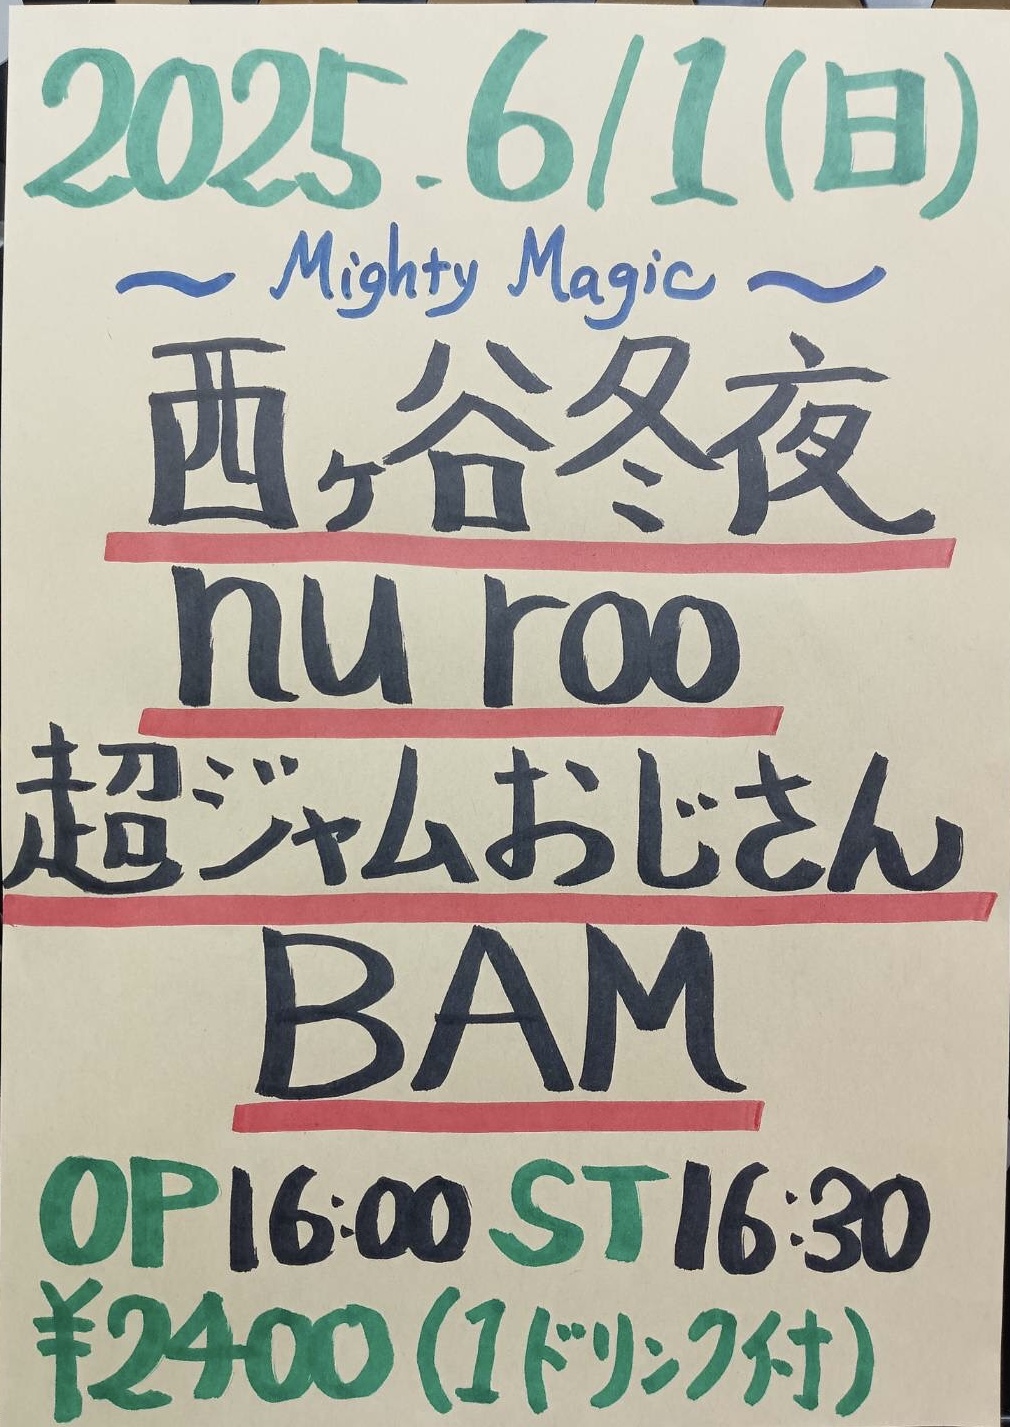 2025.6/1(日)
～Mighty Magic～
西ヶ谷冬夜
nu roo
超ジャムおじさん
BAM
OP16:00 ST16:30
¥2400(1ドリンク付)